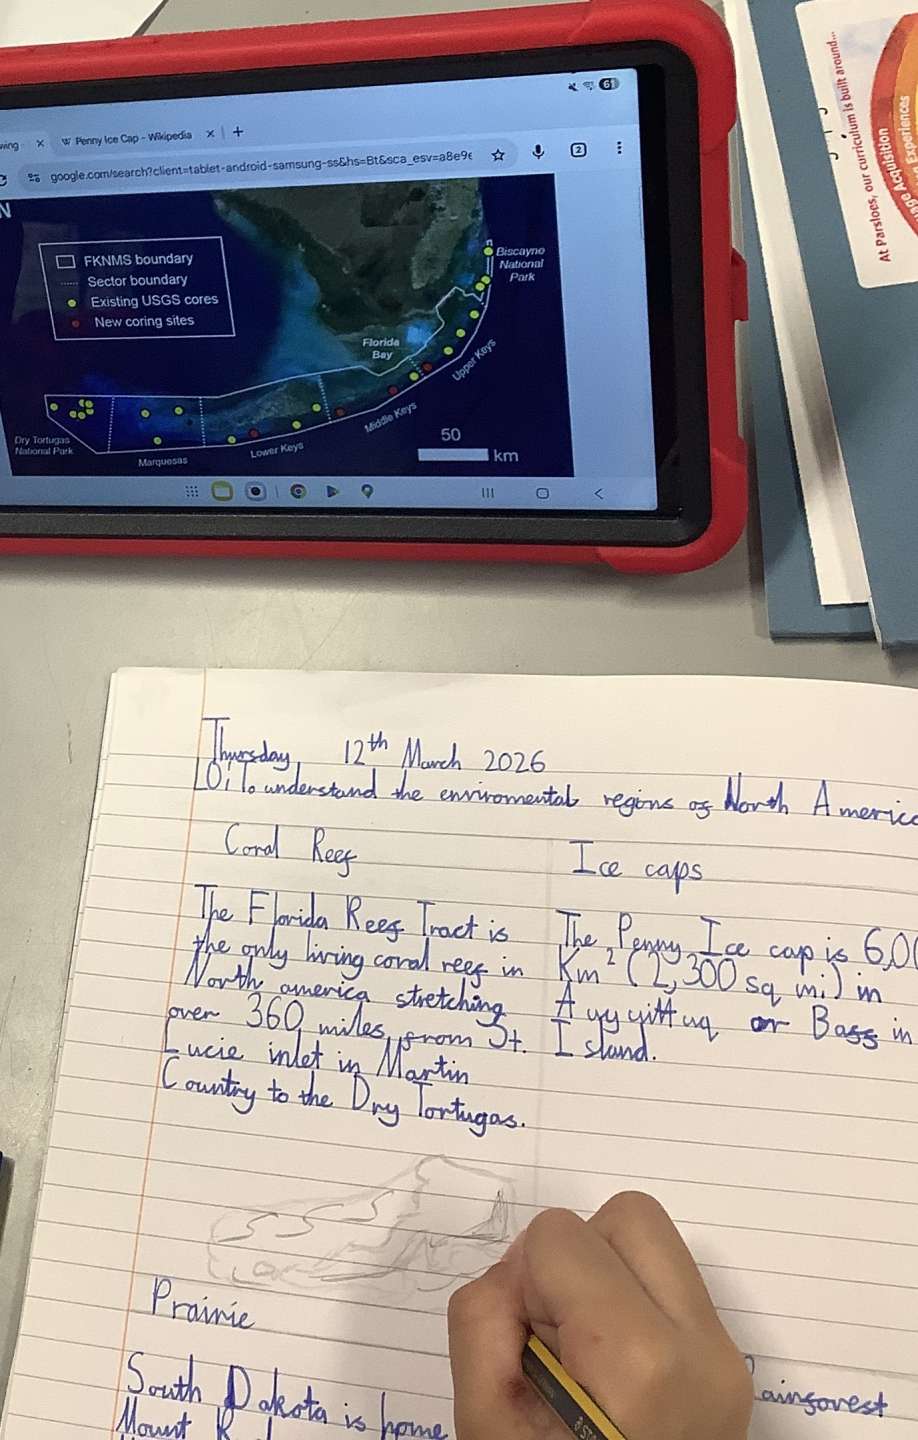 wing
Penny Ice Cap - Wikipedia
61
google.com/search?client=tablet-android-samsung-ss&hs=Bt&sca_esv=a8e9
2
N
FKNMS boundary
Sector boundary
Existing USGS cores
New coring sites
Biscayne
National
Park
Florida
Bay
Upper Keys
Middle Keys
Lower Keys
Marquesas
Dry Tortugas
National Park
50
km
At Parsloes, our curriculum is built around...
ge Acquisition
Experiences
Thursday 12th March 2026
LO: To understand the enviromental regions of North America
Coral Reef
The Florida Reef Tract is
the only living coral reef in
North america stretching
over 360 miles, from St.
Lucie inlet in Martin
Country to the Dry Tortugas.
Ice caps
The Penny Ice cap is 6,0
Km² (2,300 sq mi) in
Auyuittuq or Bass in
Island.
Prairie
South Dakota is home
Mount
ainforest